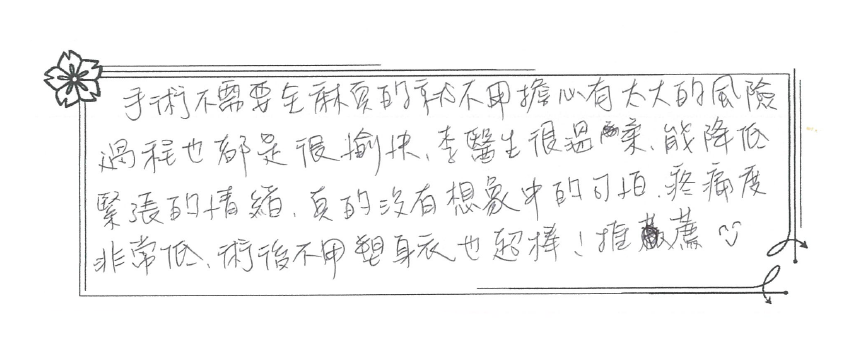 手術不需要全麻真的就不用擔心有太大的風險
過程也都是很愉快、李醫生很溫柔、能降低
緊張的情緒、真的沒有想象中的可怕、疼痛度
非常低、術後不用塑身衣也超棒！推薦